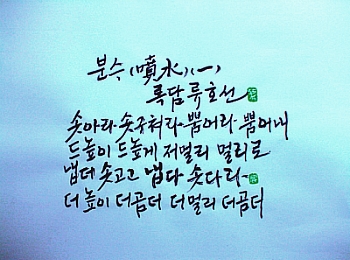 분수 (噴水) (一)
록담 류호선
솟아라 솟구쳐라 뿜어라 뿜어내
드높이 드높게 저멀리 멀리로
냅더 솟고고 냅다 솟다라
더 높이 더곰더 더멀리 더곰더